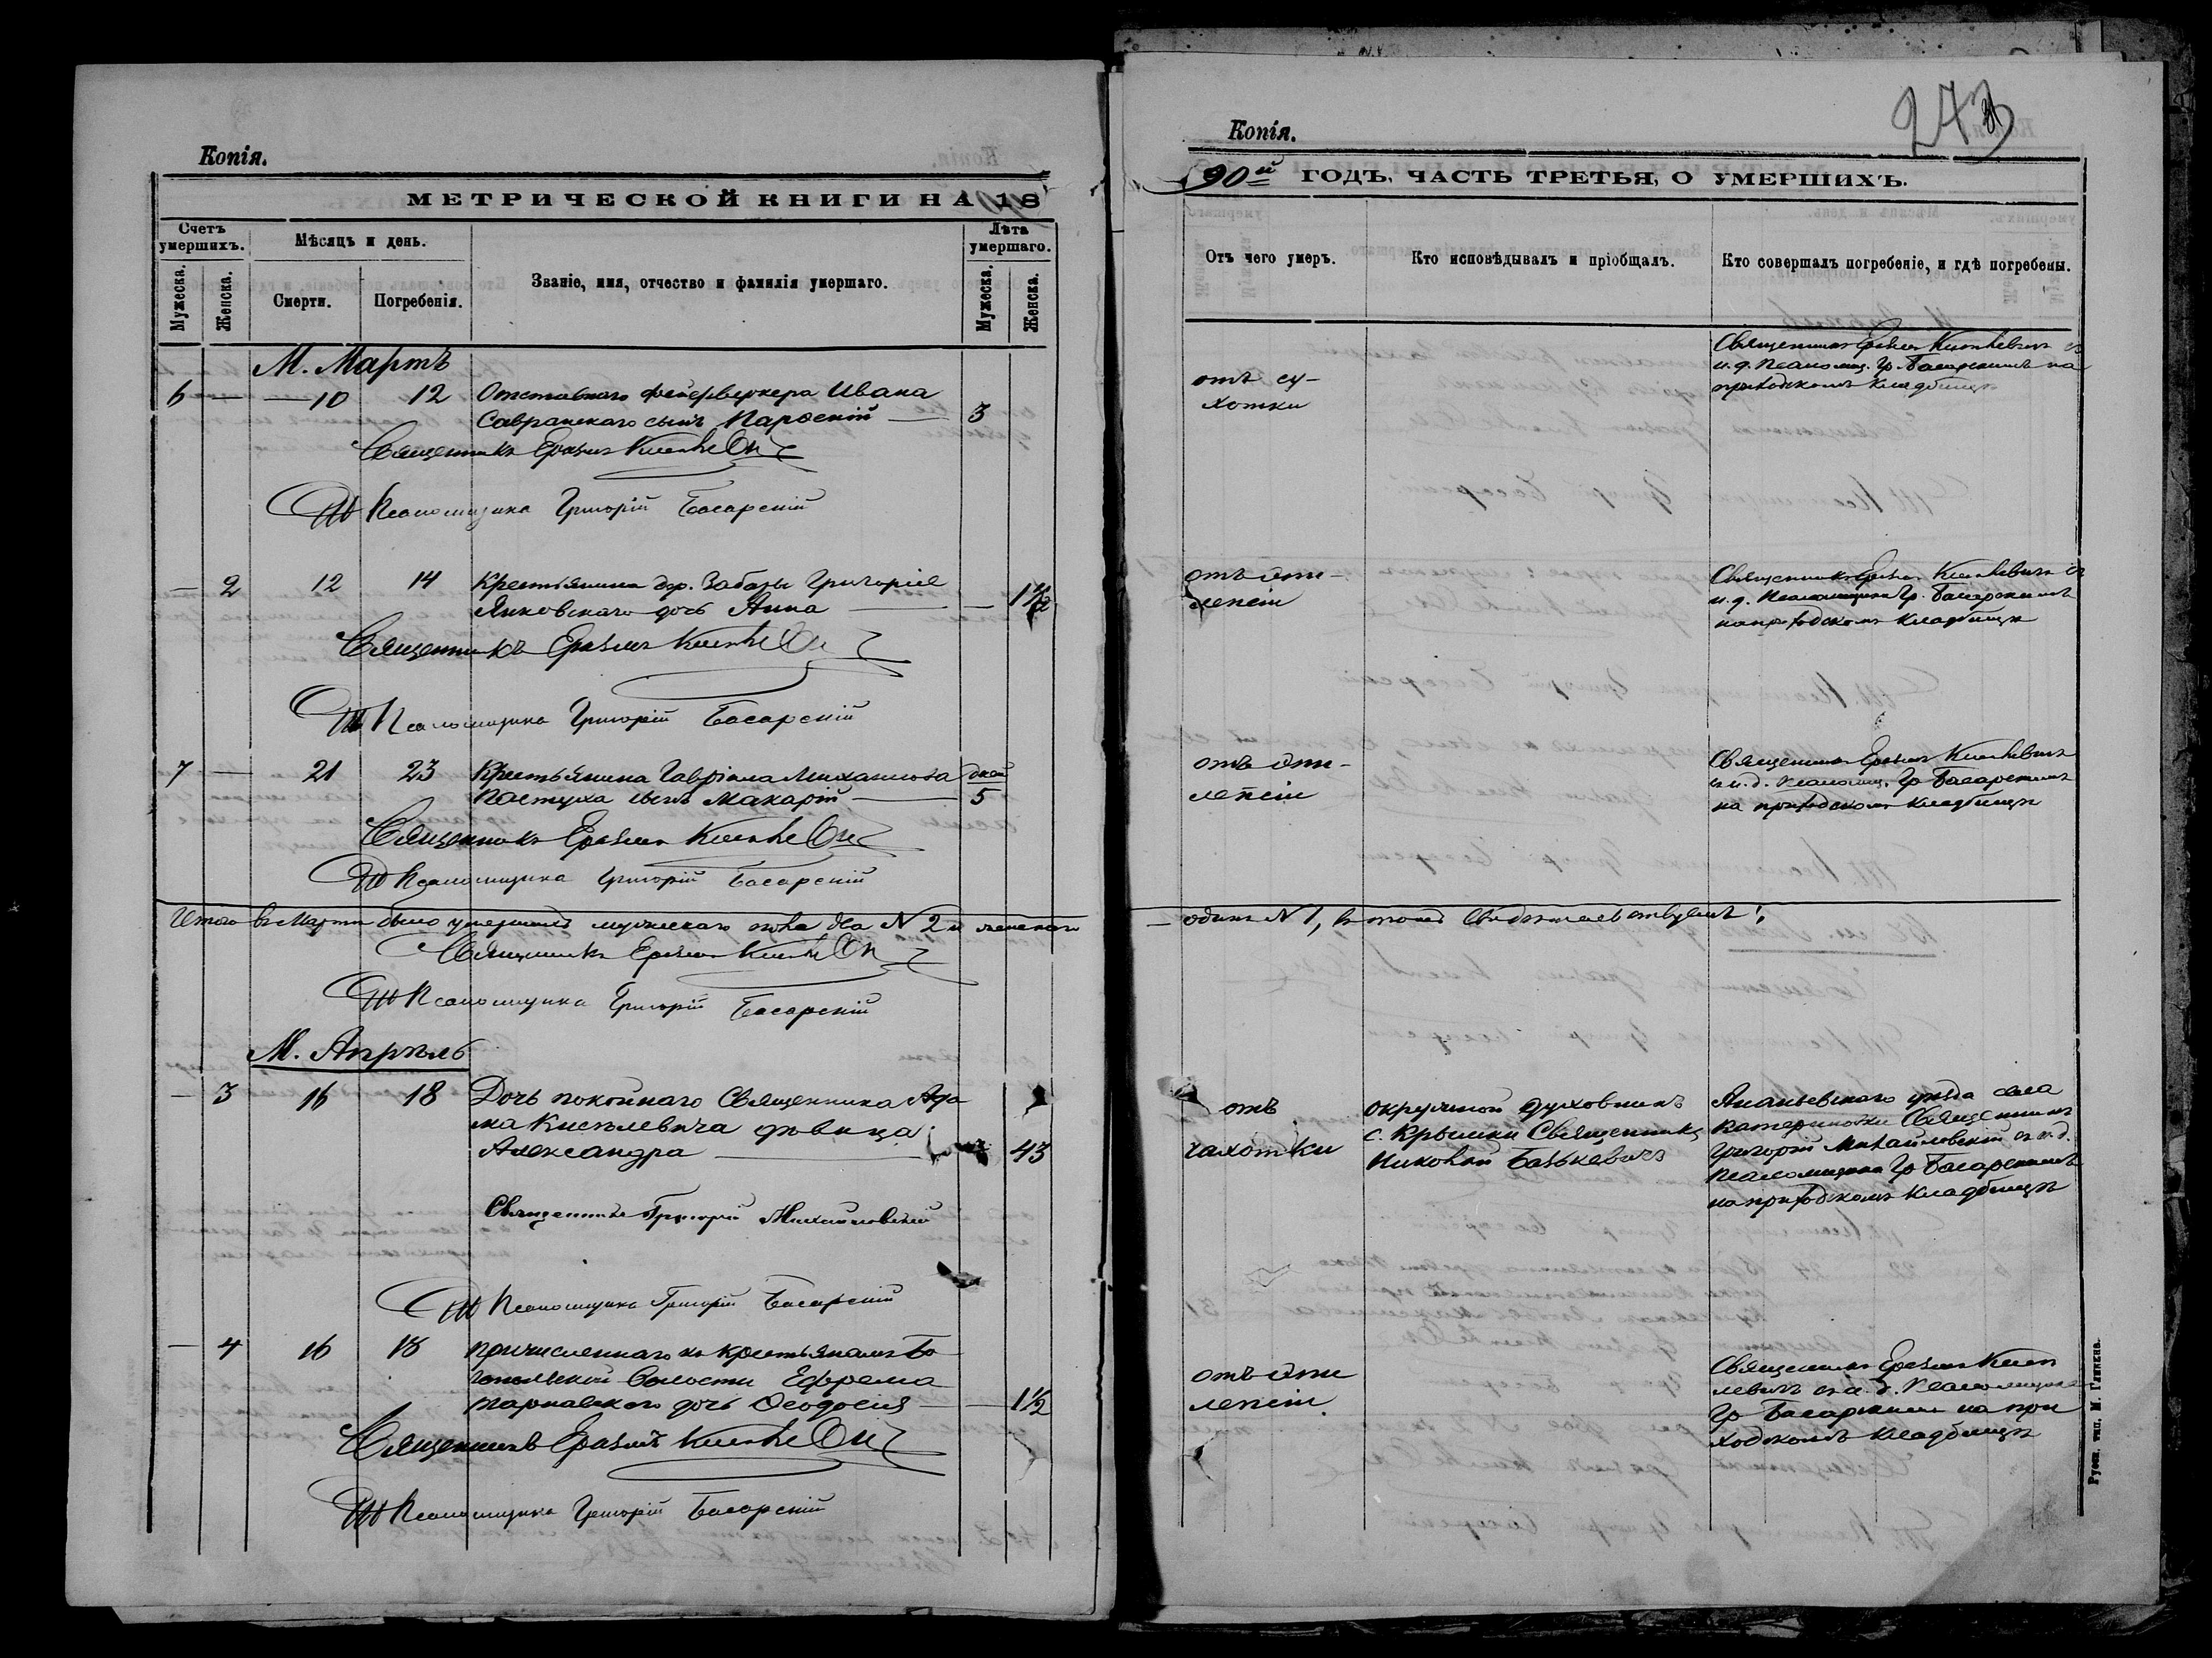 Копія.
МЕТРИЧЕСКОЙ КНИГИ НА 18
Счетъ умершихъ.
Мѣсяцъ и день.
Званіе, имя, отчество и фамилія умершаго.
Лѣта умершаго.
Мужеска.
Женска.
Смерти.
Погребенія.
Мужеска.
Женска.
М. Мартъ
6 — — 10 12 Отставнаго фейерверкера Ивана
Савранскаго сынъ Парѳеній — 3
Священникъ Еразмъ
И д Псаломщика Григорій Басарскій
— 2 12 14 Крестьянина дер. Забазы Григорія
Янковскаго дочь Анна — — 1½
Священникъ Еразмъ
И д Псаломщика Григорій Басарскій
7 — 21 23 Крестьянина Гавріила Михаилова дней
Пастуха сынъ Макарій — 5
Священникъ Еразмъ
И д Псаломщика Григорій Басарскій
Итого въ Мартѣ было умершихъ мужескаго пола два № 2 и женскаго
Священникъ Еразмъ
И д Псаломщика Григорій Басарскій
М. Апрѣль
— 3 16 18 Дочь покойнаго Священника Ада
ма Киселевича дѣвица
Александра — 43
Священникъ Григорій Михайловскій
И д Псаломщика Григорій Басарскій
— 4 16 18 Причисленнаго къ крестьянамъ
волости Ефрема
Тарнавскаго дочь Ѳеодосія — — 1½
Священникъ Еразмъ
И д Псаломщика Григорій Басарскій
Копія.
243
90й ГОДЪ, ЧАСТЬ ТРЕТЬЯ, О УМЕРШИХЪ.
Отъ чего умеръ.
Кто исповѣдывалъ и пріобщалъ.
Кто совершалъ погребеніе, и гдѣ погребены.
отъ су-
хотки
Священникъ Еразмъ съ
и. д. Псаломщ. Гр. Басарскимъ на
приходскомъ кладбищѣ
отъ эпи-
лепсіи
Священникъ Еразмъ съ
и. д. Псаломщика Гр. Басарскимъ
на приходскомъ кладбищѣ
отъ эпи-
лепсіи
Священникъ Еразмъ
съ и. д. Псаломщ. Гр Басарскимъ
на приходскомъ кладбищѣ
— одинъ № 1, въ томъ свидѣтельствуемъ:
отъ
чахотки
Окружной духовникъ
с. Крымки Священникъ
Николай Базькевичъ
Ананьевскаго уѣзда села
Катериновки Священникъ
Григорій Михайловскій съ и. д.
Псаломщика Гр Басарскимъ
на приходскомъ кладбищѣ
отъ эпи
лепсіи
Священникъ Еразмъ Кисе
левичъ съ и. д. Псаломщика
Гр Басарскимъ на при
ходскомъ кладбищѣ
Русск. тип. М. Гликина.